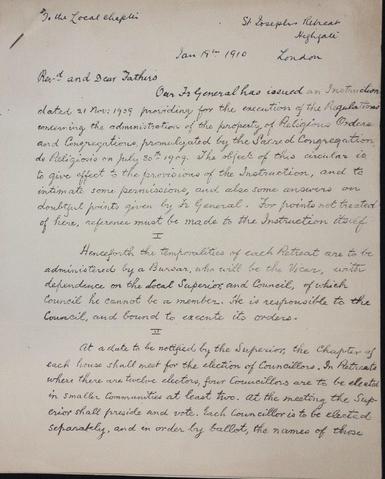 To the Local Chapters
St Joseph's Retreat
Highgate
London
Jan 19th 1910
Revd and Dear Fathers
Our Fr General has issued an Instruction
dated 21 Nov: 1909 providing for the execution of the Regulations
concerning the administration of the property of Religious Orders
and Congregations, promulgated by the Sacred Congregation
de Religiosis on July 30th 1909. The object of this circular is
to give effect to the provisions of the Instruction, and to
intimate some permissions, and also some answers on
doubtful points given by Fr General. For points not treated
of here, reference must be made to the Instruction itself.
I
Henceforth the temporalities of each Retreat are to be
administered by a Bursar, who will be the Vicar, with
dependence on the Local Superior, and Council, of which
Council he cannot be a member. He is responsible to the
Council, and bound to execute its orders.
II
At a date to be notified by the Superior, the Chapter of
each house shall meet for the election of Councillors. In Retreats
where there are twelve electors, four Councillors are to be elected
in smaller Communities at least two. At the meeting the Sup-
erior shall preside and vote. Each Councillor is to be elected
separately, and in order by ballot, the names of those